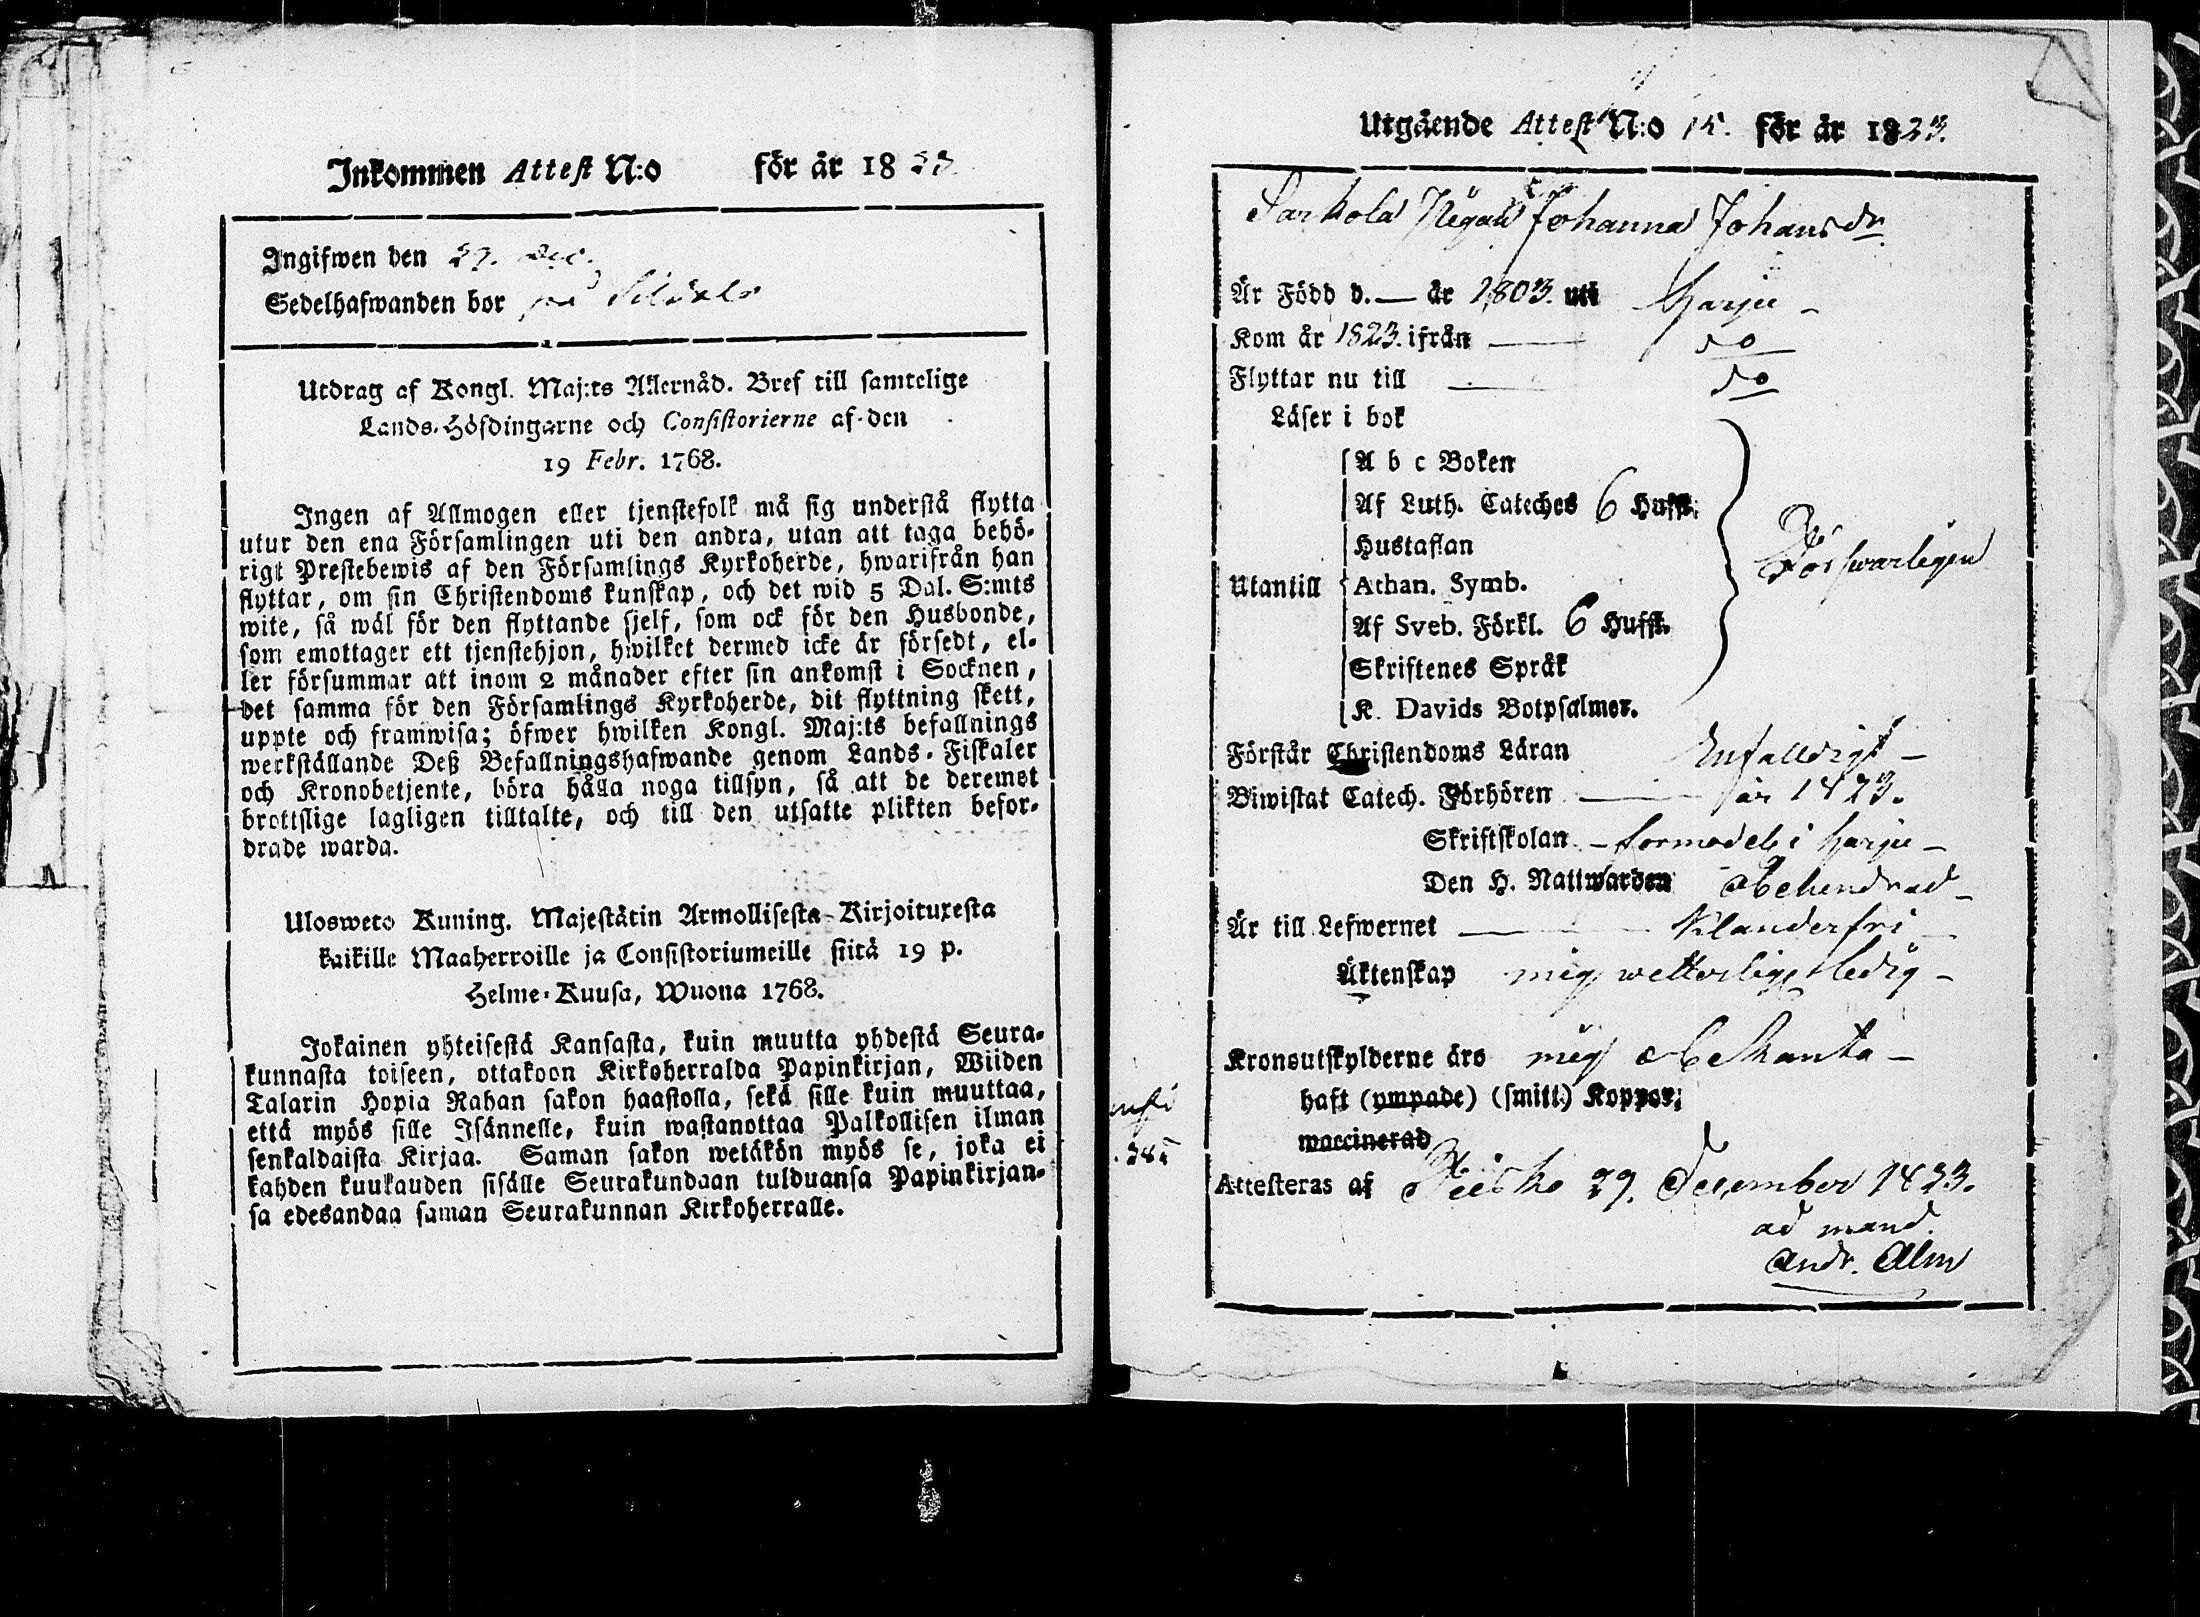 Inkommen Attest N:o för år 1823
Ingifwen den 29. Dec.
Sedelhafwanden bor på
Utdrag af Kongl. Maj:ts Allernåd. Bref till samtelige
Lands-Höfdingarne och Consistorierne af den
19 Febr. 1768.
Ingen af Allmogen eller tjenstefolk må sig understå flytta
utur den ena Församlingen uti den andra, utan att taga behö-
rigt Prestebewis af den Församlings Kyrkoherde, hwarifrån han
flyttar, om sin Christendoms kunskap, och det wid 5 Dal. S:mts
wite, så wäl för den flyttande sjelf, som ock för den Husbonde,
som emottager ett tjenstehjon, hwilket dermed icke är försedt, el-
ler försummar att inom 2 månader efter sin ankomst i Socknen,
det samma för den Församlings Kyrkoherde, dit flyttning skett,
uppte och framwisa; öfwer hwilken Kongl. Maj:ts befallnings
werkställande Deß Befallningshafwande genom Lands-Fiskaler
och Kronobetjente, böra hålla noga tillsyn, så att de deremot
brottslige lagligen tilltalte, och till den utsatte plikten befor-
drade warda.
Ulosweto Kuning. Majestätin Armollisesta-Kirjoituxesta
kaikille Maaherroille ja Consistoriumeille siitä 19 p.
Helme-Kuusa, Wuona 1768.
Jokainen yhteisestä Kansasta, kuin muutta yhdestä Seura-
kunnasta toiseen, ottakoon Kirkoherralda Papinkirjan, Wiiden
Talarin Hopia Rahan sakon haastolla, sekä sille kuin muuttaa,
että myös sille Isännelle, kuin wastanottaa Palkollisen ilman
senkaldaista Kirjaa. Saman sakon wetäkön myös se, joka ei
kahden kuukauden sisälle Seurakundaan tulduansa Papinkirjan-
sa edesandaa saman Seurakunnan Kirkoherralle.
Utgående Attest N:o 15. för år 1823.
Sarkola Johanna Johansdr
Är Född d. — år 1803. uti Harju –
Kom år 1823. ifrån — do
Flyttar nu till — do
Läser i bok
A b c Boken
Af Luth. Cateches 6 Hufst.
Hustaflan
Utantill Athan. Symb.
Af Sveb. Förkl. 6 Hufst.
Skriftenes Språk
K. Davids Botpsalmer.
Förswarligen
Förstår Christendoms Läran Enfalldigt –
Biwistat Catech. Förhören — år 1823.
Skriftskolan – formodel. i Harju –
Den H. Nattwarden obehindrad –
Är till Lefwernet — Klanderfri –
Äktenskap mig wetterligt ledig –
Kronoutskylderne äro mig obekanta –
haft (ympade) (smitt.) Koppor;
waccinerad
285
Attesteras af 29. December 1823.
ad mand.
Andr. Alm